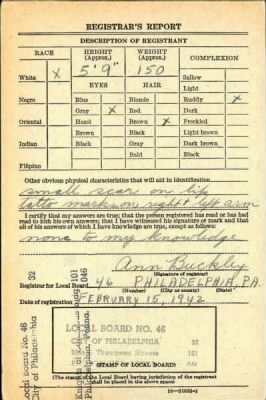 REGISTRAR'S REPORT
DESCRIPTION OF REGISTRANT
RACE HEIGHT (Approx.) WEIGHT (Approx.) COMPLEXION
White X 5' 9" 150 Sallow
Light
EYES HAIR
Negro Blue Blonde Ruddy X
Gray X Red Dark
Oriental Hazel Brown X Freckled
Brown Black Light brown
Indian Black Gray Dark brown
Bald Black
Filipino
Other obvious physical characteristics that will aid in identification
small scar on lip
tatto marks on right & left arm
I certify that my answers are true; that the person registered has read or has had
read to him his own answers; that I have witnessed his signature or mark and that
all of his answers of which I have knowledge are true, except as follows:
none to my knowledge
Ann Buckley
(Signature of registrar)
Registrar for Local Board 46 PHILADELPHIA, PA.
(Number) (City or county) (State)
Date of registration FEBRUARY 15, 1942
LOCAL BOARD NO. 46
OF PHILADELPHIA 32
Thompson Streets 101
STAMP OF LOCAL BOARD
(The stamp of the Local Board having jurisdiction of the registrant
shall be placed in the above space)
Local Board No. 46 32
City of Philadelphia 101
Philadelphia, Penna. 046